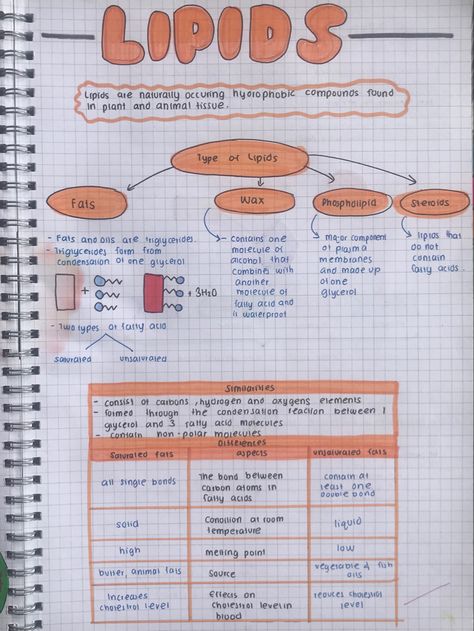 LIPIDS
Lipids are naturally occuring hydrophobic compounds found
in plant and animal tissue.
Type of Lipids
Fats
Wax
Phospholipid
Steroids
- Fats and oils are triglycerides.
- Triglycerides form from
condensation of one glycerol
+ + 3H2O
- Two types of fatty acid
saturated unsaturated
- contains one
molecule of
alcohol that
combines with
another
molecule of
fatty acid and
is waterproof
major component
of plasma
membranes
and made up
of one
glycerol
lipids that
do not
contain
fatty acids.
Similarities
- consist of carbons, hydrogen and oxygens elements
- formed through the condensation reaction between 1
glycerol and 3 fatty acid molecules
- contain non-polar molecules
Differences
saturated fats aspects unsaturated fats
all single bonds
The bond between
carbon atoms in
fatty acids
contain at
least one
double bond
solid
Condition at room
temperature
liquid
high melting point low
butter, animal fats
source
vegetable & fish
oils
Increases
cholestrol level
effects on
cholestrol level in
blood
reduces cholestrol
level